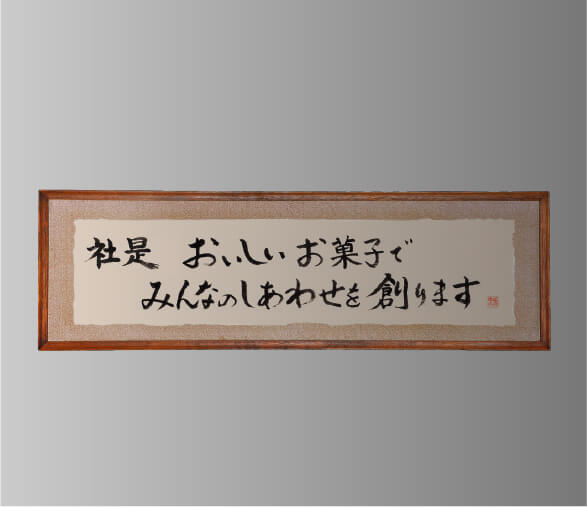 社是 おいしいお菓子で
みんなのしあわせを創ります